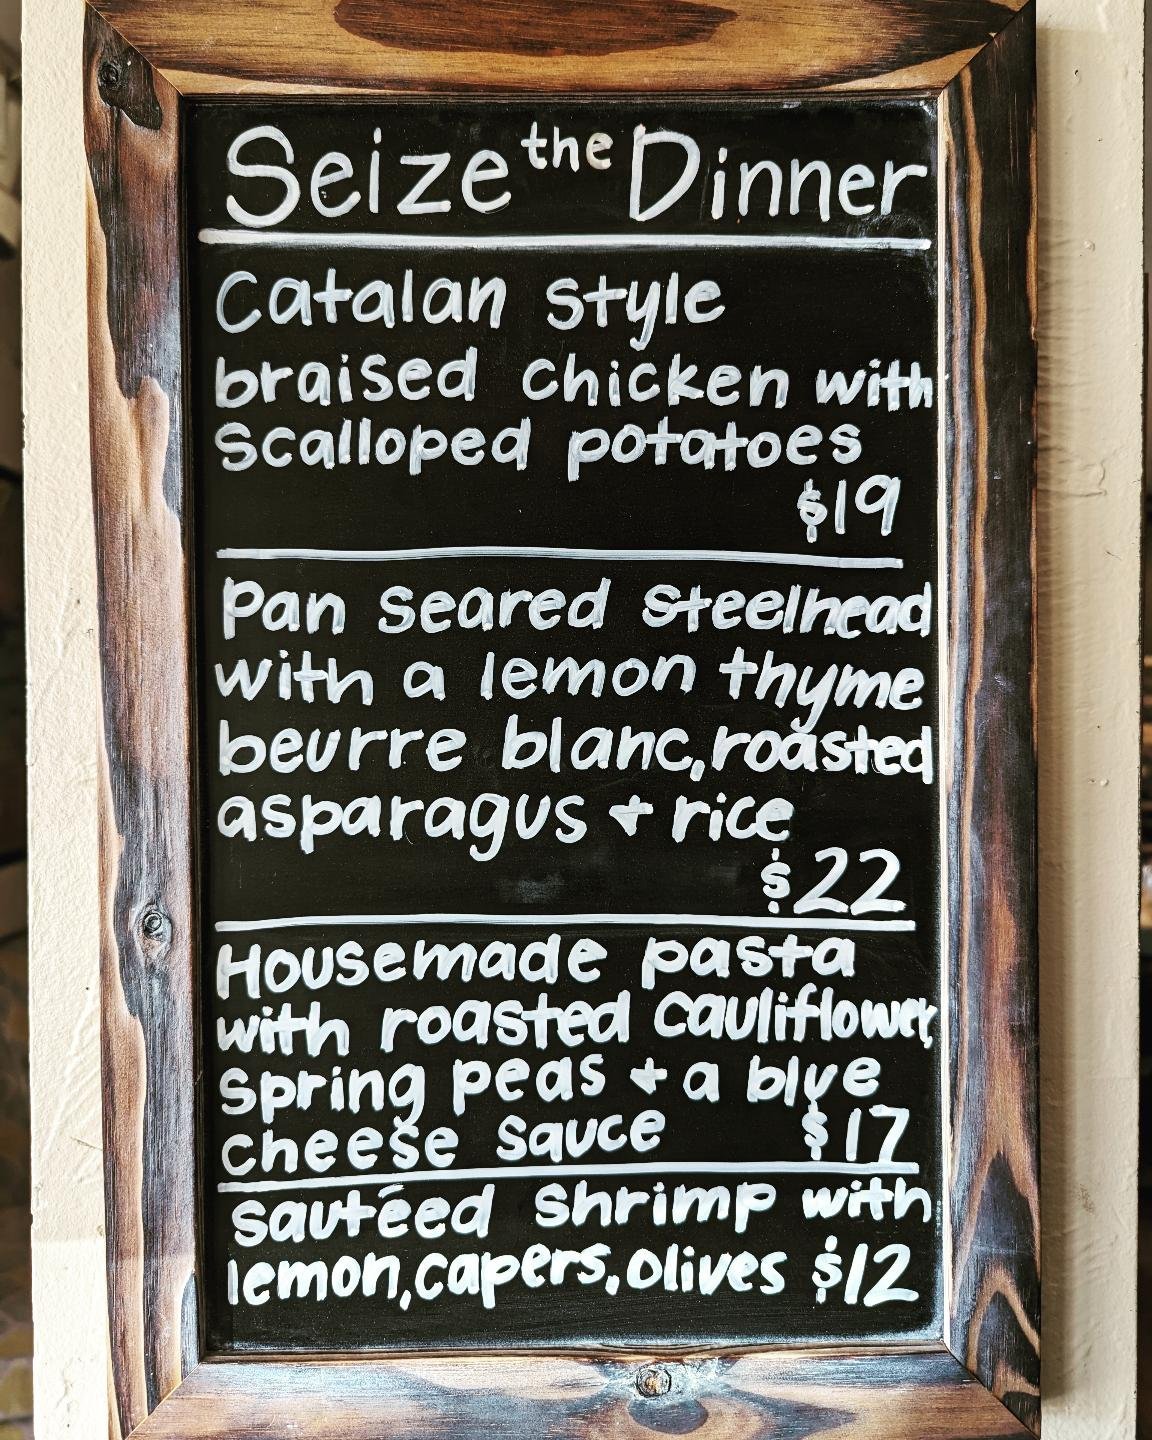 Seize the Dinner
Catalan style
braised chicken with
scalloped potatoes
$19
Pan seared steelhead
with a lemon thyme
beurre blanc, roasted
asparagus + rice
$22
Housemade pasta
with roasted cauliflower
spring peas + a blue
cheese sauce $17
sautéed shrimp with
lemon, capers, olives $12